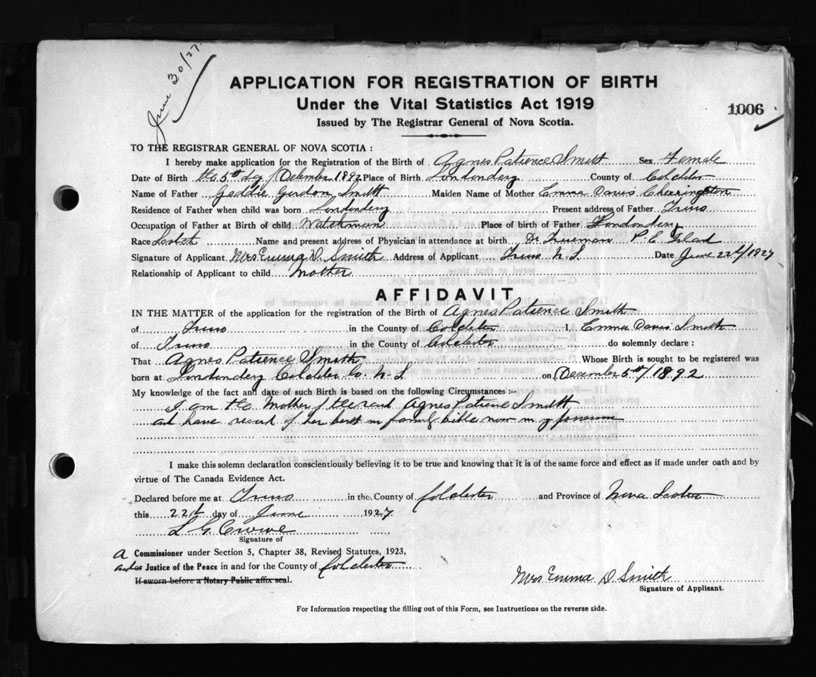 June 30/27
APPLICATION FOR REGISTRATION OF BIRTH
Under the Vital Statistics Act 1919
1006
Issued by The Registrar General of Nova Scotia.
TO THE REGISTRAR GENERAL OF NOVA SCOTIA :
I hereby make application for the Registration of the Birth of Agnes Patience Smith Sex Female
Date of Birth the 5th day of December 1892 Place of Birth Londonderry County of Colchester
Name of Father Gordon Smith Maiden Name of Mother Emma Davis
Residence of Father when child was born Londonderry Present address of Father Truro
Occupation of Father at Birth of child Watchman Place of birth of Father Londonderry
Race Scotch Name and present address of Physician in attendance at birth Dr Trueman P. E. Island
Signature of Applicant Mrs Emma D. Smith Address of Applicant Truro N. S. Date June 22d/1927
Relationship of Applicant to child Mother
AFFIDAVIT
IN THE MATTER of the application for the registration of the Birth of Agnes Patience Smith
of Truro in the County of Colchester I, Emma Davis Smith
of Truro in the County of Colchester do solemnly declare :
That Agnes Patience Smith Whose Birth is sought to be registered was
born at Londonderry Colchester Co. N. S on December 5th/1892
My knowledge of the fact and date of such Birth is based on the following Circumstances :-
I am the Mother of the said Agnes Patience Smith
and have record of her birth in family bible now in my possession
I make this solemn declaration conscientiously believing it to be true and knowing that it is of the same force and effect as if made under oath and by
virtue of The Canada Evidence Act.
Declared before me at Truro in the County of Colchester and Province of Nova Scotia
this 22d day of June 1927
L. G. Crowe
Signature of
a Commissioner under Section 5, Chapter 38, Revised Statutes, 1923,
Justice of the Peace in and for the County of Colchester
If sworn before a Notary Public affix seal.
Mrs Emma D. Smith
Signature of Applicant.
For Information respecting the filling out of this Form, see Instructions on the reverse side.